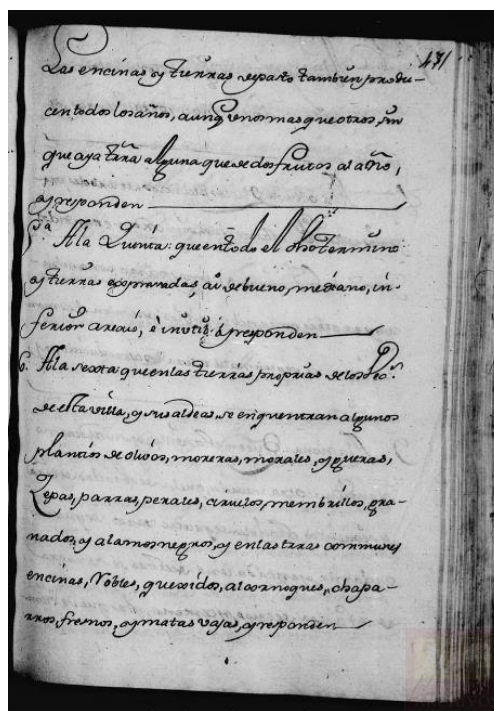 471
Las encinas, y tierras de pasto tambien produ-
cen todos los años, aunq̃ unos mas que otros, sin
que aya trrã alguna que de dos frutos al año,
y responden
5ª A la Quinta: que en tõdo el dho termino
y tierras ay de bueno, mediano, in-
ferior, e inutil, y responden
6. A la sexta que en las tierras propias de los Vezos
de esta villa, y sus aldeas, se enquentran algunos
plantios de olivos, moreras, morales, ygueras,
Zepas, parras, perales, ciruelos, membrillos, gra-
nados, y alamos negros, y en las trras comunes
encinas, Robles, quexidos, alcornoques, chapa-
rros, fresnos, y matas vajas, y responden